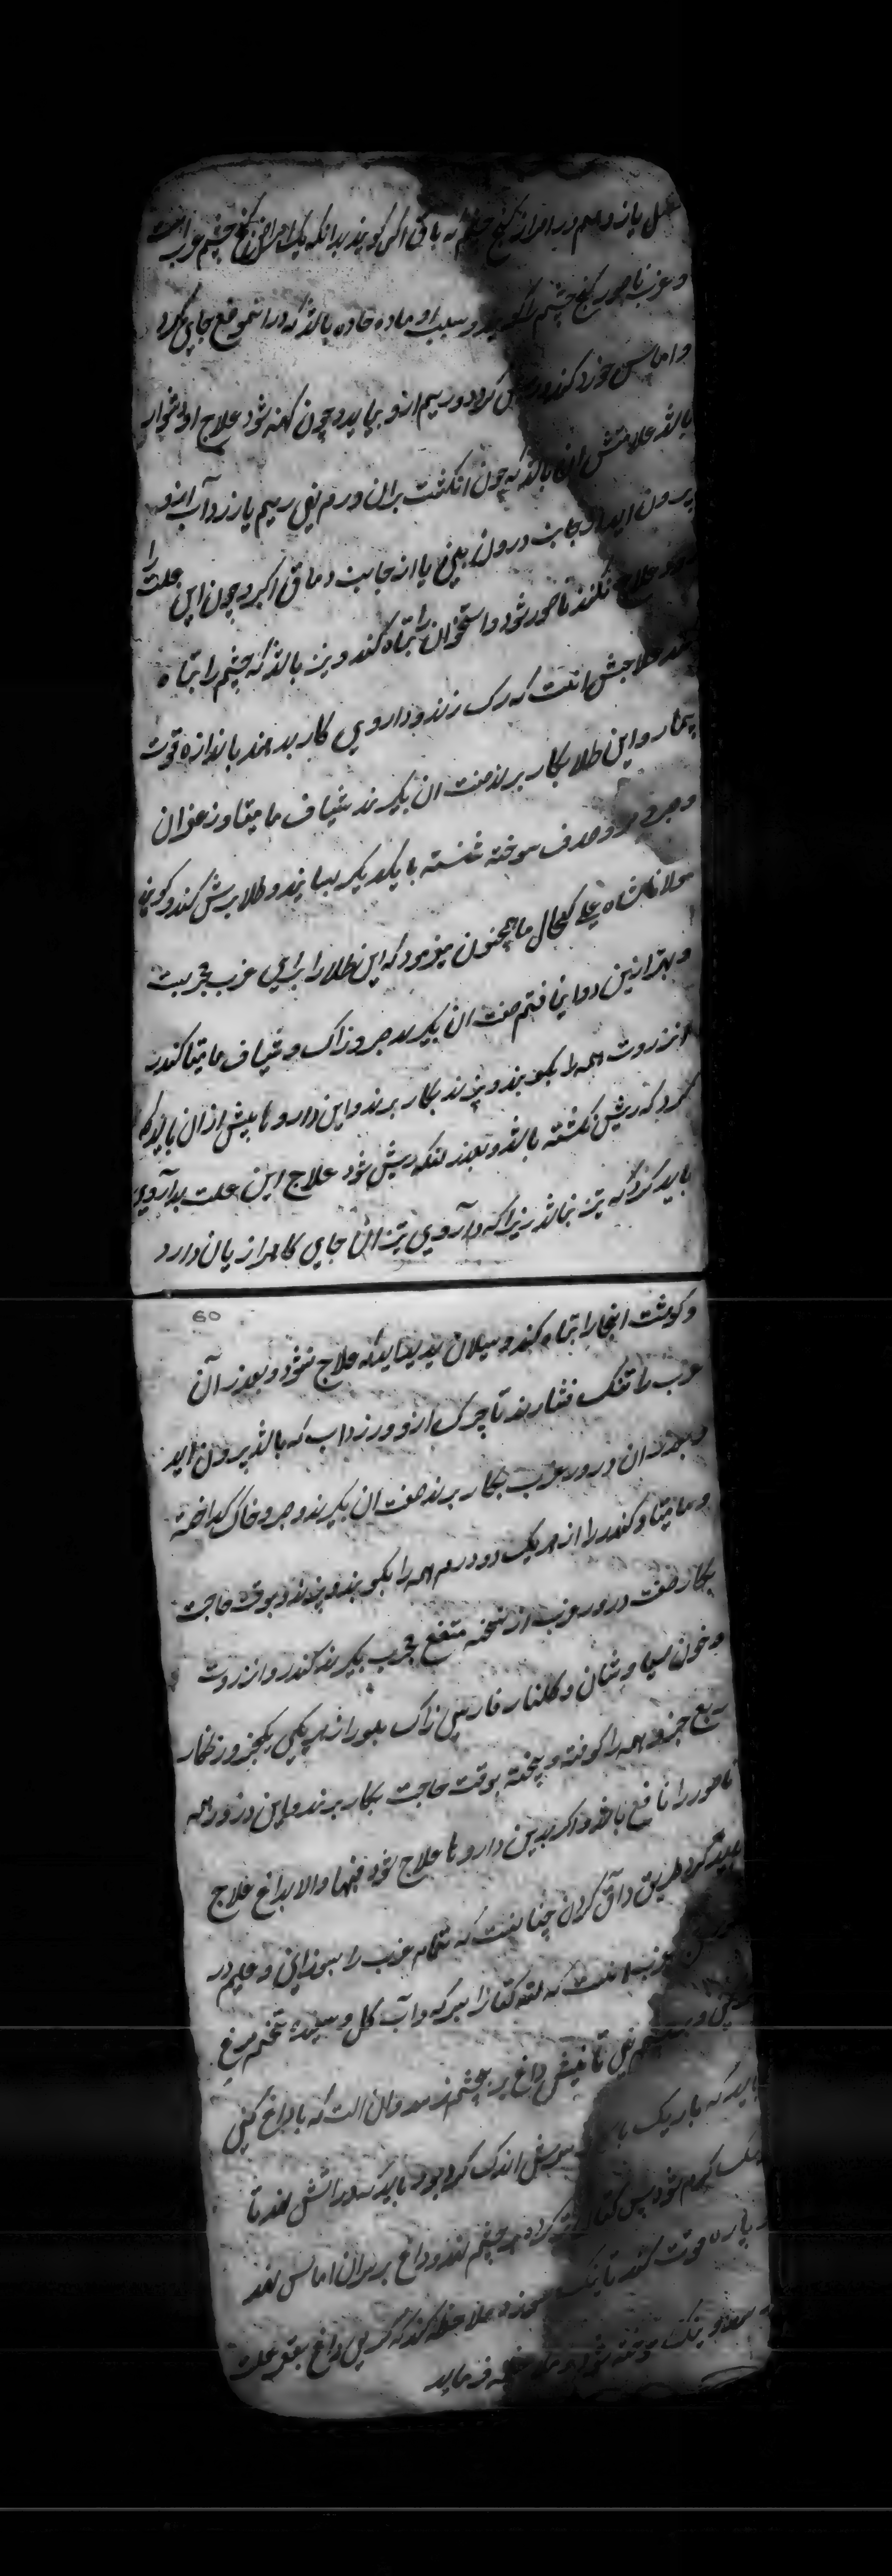 یازدهم در امراض کنج چشم که ماق اکبر گویند بدانکه یک امراض کنج چشم غرب است
و غرب ناصور کنج چشم را گویند و سبب او ماده حاده باشد که در آن موضع جای گیرد
و اماس خورد کند و ریش کردد و ریم ازو بیاید و چون کهنه شود علاج او دشوار
باشد علامتش آن باشد که چون انکشت بران ورم نهی ریم یا زرد آب ازو
بیرون اید از جانب درون بینی یا از جانب ماق اکبر و چون این علت را
زود علاج نکنند ناصور شود و استخوان را تباه کند و نیز باشد که چشم را تباه
کند علاجش انست که رک زنند و داروی کار بدهند باندازه قوت
بیمار و این طلا بکار برند صفت ان بکیرند شیاف مامیثا و زعفران
و صدف سوخته شسته با یکدیکر بسایند و طلا برش کند و کویند
مولانا شاه علی کحال ما همچنون میفرمود که این طلا را برای غرب مجربست
و بهتر ازین دوا نیافتم صفت ان بکیرند و زاک و شیاف مامیثا کندر
انزروت همه را بکوبند و بیزند بکار برند و این دارو تا پیش ازان باید که
کرد که ریش نکشته باشد و بعد زانکه ریش شود علاج این علت بداروی
باید کرد که تیز نباشد زیرا که داروی تیز ان جای کاه را زیان دارد
60
و کوشت انجا را تباه کند و سیلان پدید اید که علاج نشود و بعد زآن
غرب را تنک فشارند تا چرک ازو و زرداب که باشد بیرون اید
و بعد زان ذرور غرب بکار برند صفت ان بکیرند و خاک کداخته
و مامیثا و کندر را از هر یک دو درم همه را بکوبند و بیزند و بوقت حاجت
بکار صفت ذرور غرب از نسخه مجرب بکیرند کندر و انزروت
و خون سیاوشان و کلنار فارسی زاک بلور از هر یکی یکجزو زنکار
ربع جزو همه را کوفته و بیخته بوقت حاجت بکار برند و این ذرور همه
ناصور را نافع باشد و اکر بدین دارو تا علاج شود فبها والا بداغ علاج
باید کرد طریق داق کردن چنانست که تمام غرب را بسوزانی و
غرب انست که لته کتان را بسرکه و آب کل و سپیده تخم مرغ
چشم نهی تا تپش داغ بر چشم نرسد و ان الت که باو داغ کنی
باید که باریک سرش اندک کرد بود باید که در اتش نهند تا
نیک کرم شود پس کتان تر کرده بر چشم نهند و داغ بر بران اماس نهند
پاره قوت کند تا نیک بسوزد و ملاحظه کند که کرمی داغ بقعر علت
برسد و نیک سوخته شود فرماید